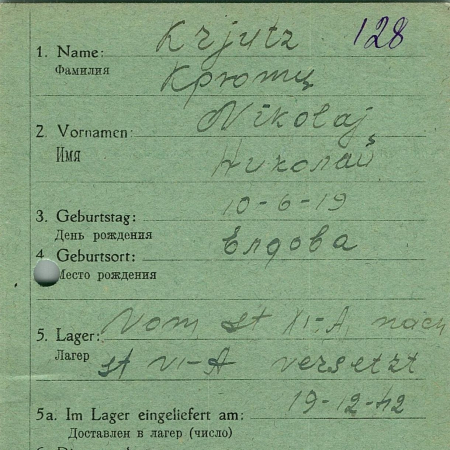 1. Name: Krjutz 128
Фамилия Крютц
2. Vornamen: Nikolaj
Имя Николай
3. Geburtstag: 10-6-19
День рождения
4. Geburtsort: Елдова
Место рождения
5. Lager: Vom st XI-A, nach
Лагер st VI-A versetzt
5a. Im Lager eingeliefert am: 19-12-42
Доставлен в лагер (число)